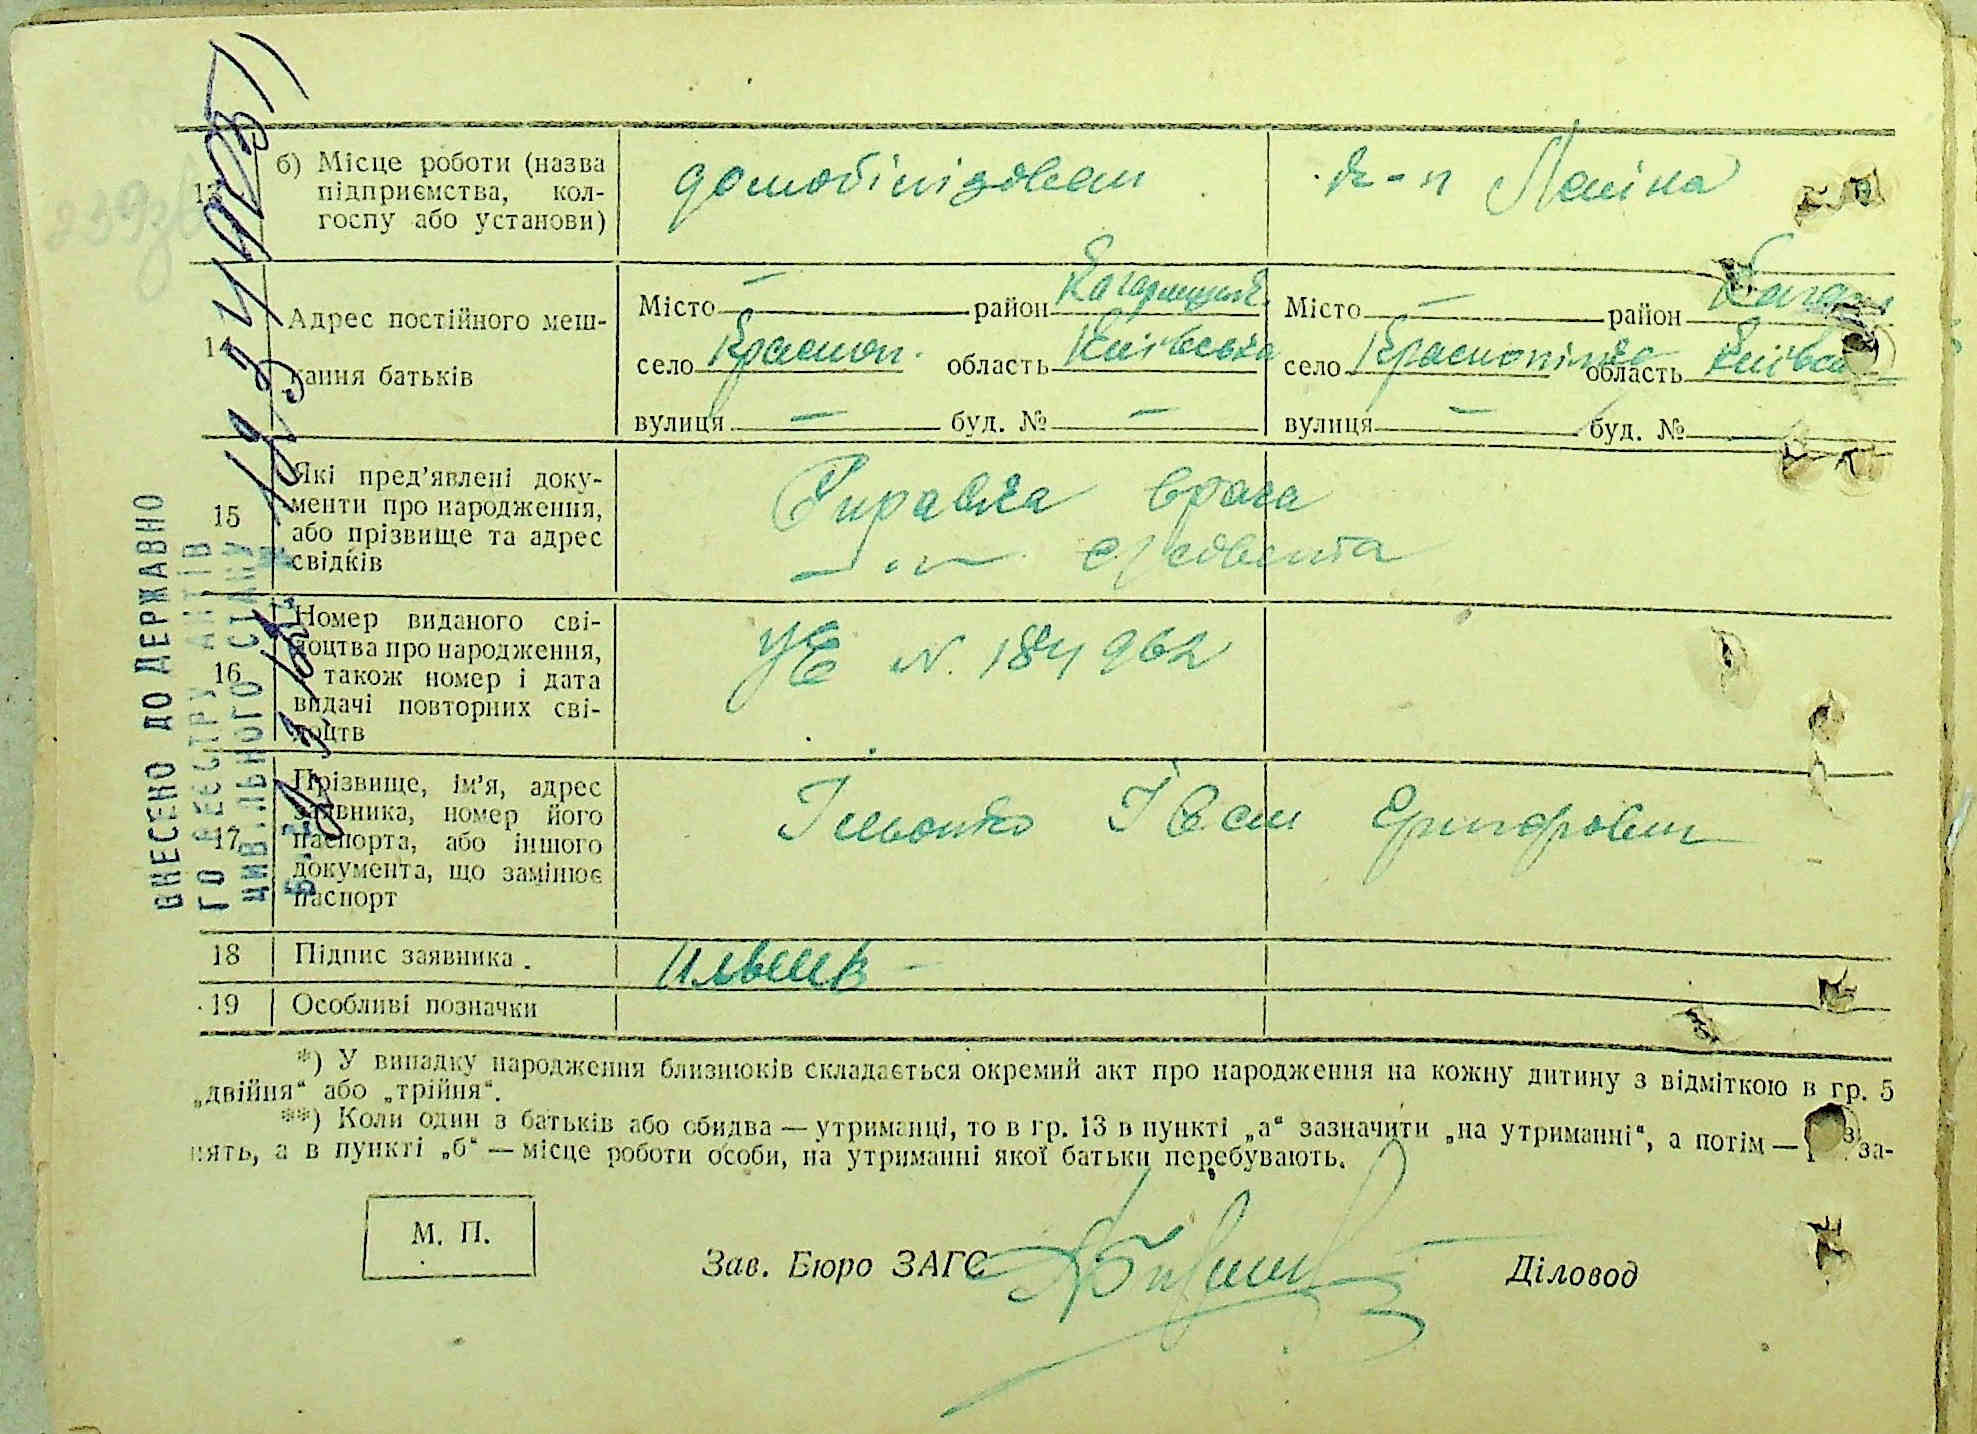 13 б) Місце роботи (назва
підприємства, кол-
госпу або установи)
к-п Леніна
14 Адрес постійного меш-
кання батьків
Місто — район
село Краснoп. область Київська
вулиця — буд. № —
Місто — район Кагарл
село Краснопілка область Київськ
вулиця — буд. №
15 Які пред'явлені доку-
менти про народження,
або прізвище та адрес
свідків
Справка врача
16 Номер виданого сві-
доцтва про народження,
а також номер і дата
видачі повторних сві-
доцтв
УЕ N. 184962
17 Прізвище, ім'я, адрес
заявника, номер його
паспорта, або іншого
документа, що замінює
паспорт
Іван
18 Підпис заявника.
19 Особливі позначки
*) У випадку народження близнюків складається окремий акт про народження на кожну дитину з відміткою в гр. 5
„двійня“ або „трійня“.
**) Коли один з батьків або обидва — утриманці, то в гр. 13 в пункті „а“ зазначити „на утриманні“, а потім — за-
нять, а в пункті „б“ — місце роботи особи, на утриманні якої батьки перебувають.
М. П.
Зав. Бюро ЗАГС
Діловод
ВНЕСЕНО ДО ДЕРЖАВНО
ГО РЕЄСТРУ АКТІВ
ЦИВІЛЬНОГО СТАНУ